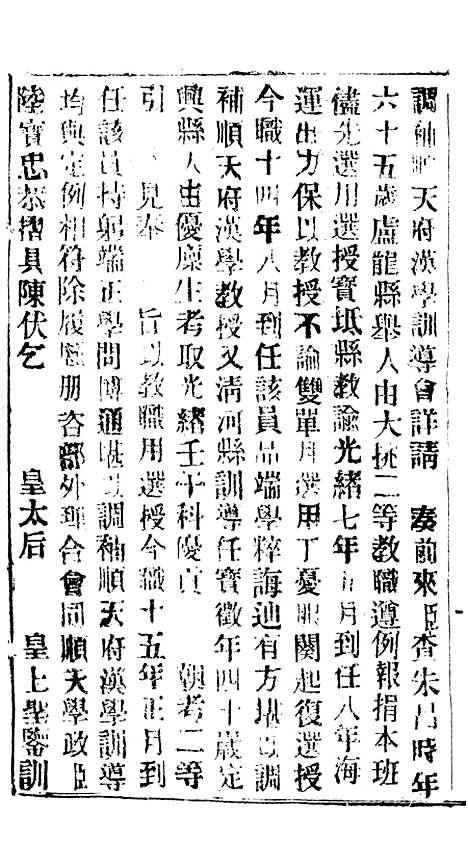 調補順天府漢學訓導會詳請　奏前來臣查朱昌時年
六十五歲盧龍縣舉人由大挑二等教職遵例報捐本班
儘先選用選授寶坻縣教諭光緒七年五月到任八年海
運出力保以教授不論雙單月選用丁憂服闋起復選授
今職十四年八月到任該員品端學粹誨迪有方堪以調
補順天府漢學教授又淸河縣訓導任寶徵年四十歲定
興縣人由優廩生考取光緒壬午科優貢　朝考二等
引　見奉　旨以教職用選授今職十五年正月到
任該員持躬端正學問博通堪以調補順天府漢學訓導
均與定例相符除履歷册咨部外理合會同順天學政臣
陸寶忠恭摺具陳伏乞　皇太后　皇上聖鑒訓